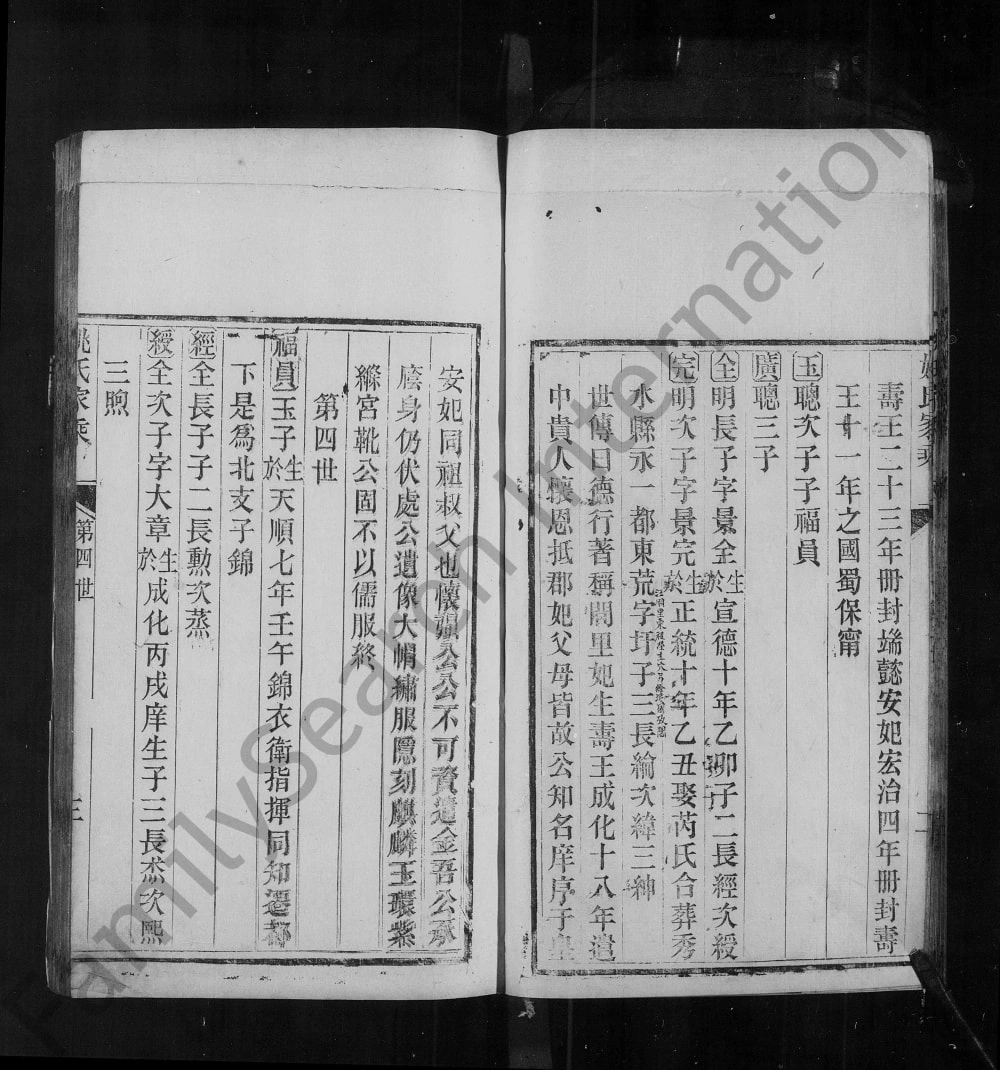 姚氏家乘
二
壽王二十三年冊封端懿安妃宏治四年冊封壽
王十一年之國蜀保甯
玉聰次子子福員
廣聰三子
全明長子字景全生於宣德十年乙卯子二長經次綬
完明次子字景完生於正統十年乙丑娶芮氏合葬秀
水縣永一都東荒字圩子三長綸次緯三紳
世傳曰德行著稱閭里妃生壽王成化十八年遣
中貴人懷恩抵郡妃父母皆故公知名庠序子皇
安妃同祖叔父也懷強公公不可資遣金吾公承
廕身仍伏處公遺像大帽繡服隱刻麒麟玉環紫
絛宮靴公固不以儒服終
第四世
福員玉子生於天順七年壬午錦衣衛指揮同知遷都
下是爲北支子錦
經全長子子二長勲次蒸
綬全次子字大章生於成化丙戌庠生子三長杰次熙
三煦
姚氏家乘
第四世
三
FamilySearch International